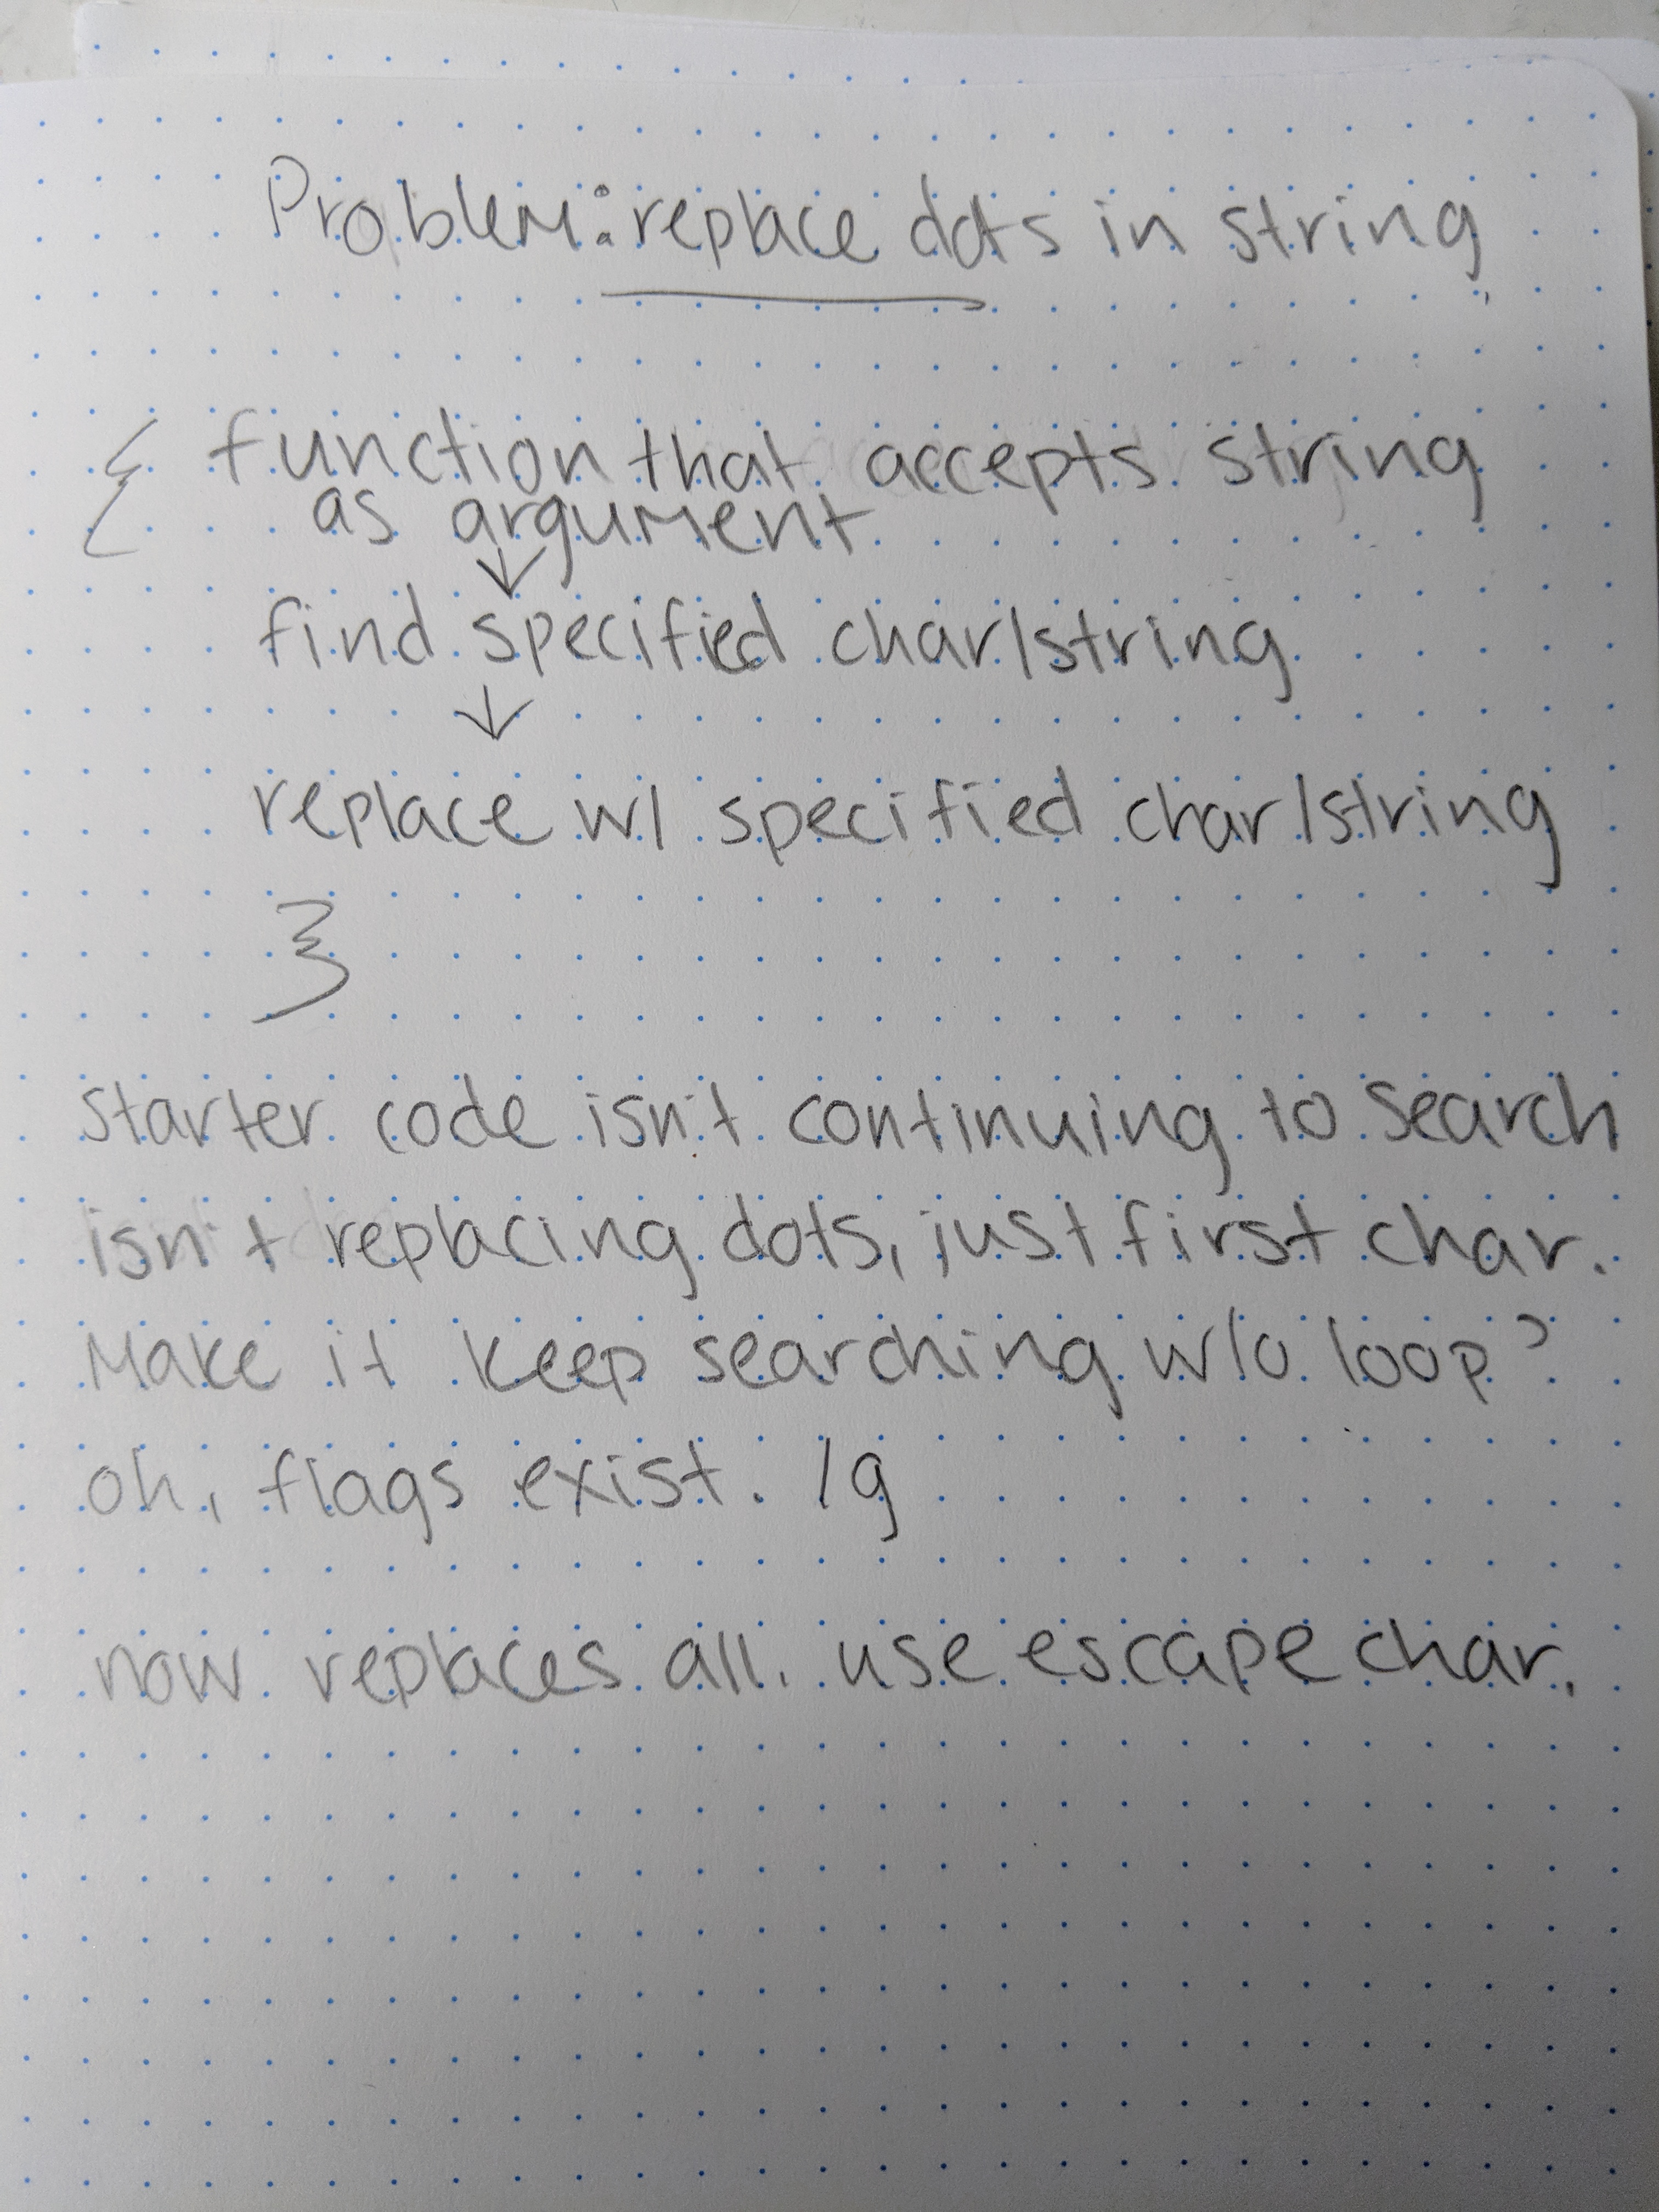 Problem: replace dots in string
{ function that accepts string
as argument
↓
find specified char/string
↓
replace w/ specified char/string
}
starter code isn't continuing to search
isn't replacing dots, just first char.
Make it keep searching w/o loop?
oh, flags exist. /g
now replaces all. use escape char.